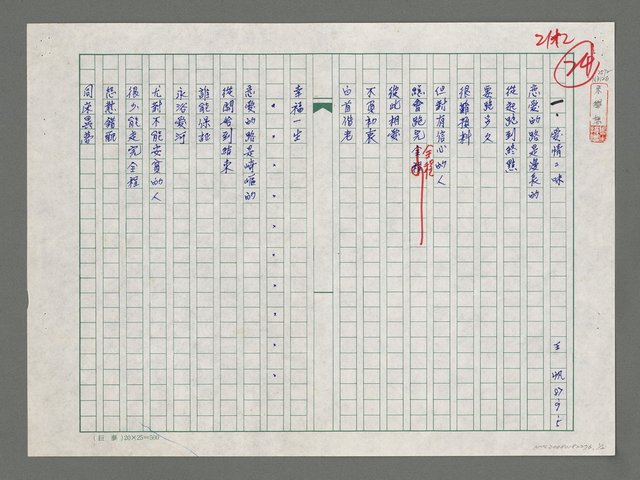 一、愛情二味
王帆87.9.5
戀愛的路是漫長的
從起跑到終點
要跑多久
很難預料
但對有信心的人
總會跑完全程
全程
彼此相愛
不負初衷
白首偕老
幸福一生
戀愛的路是崎嶇的
從開始到結束
誰能保證
永浴愛河
尤對不能安寶的人
很少能走完全程
怨懟錯亂
同床異夢
20×25=500